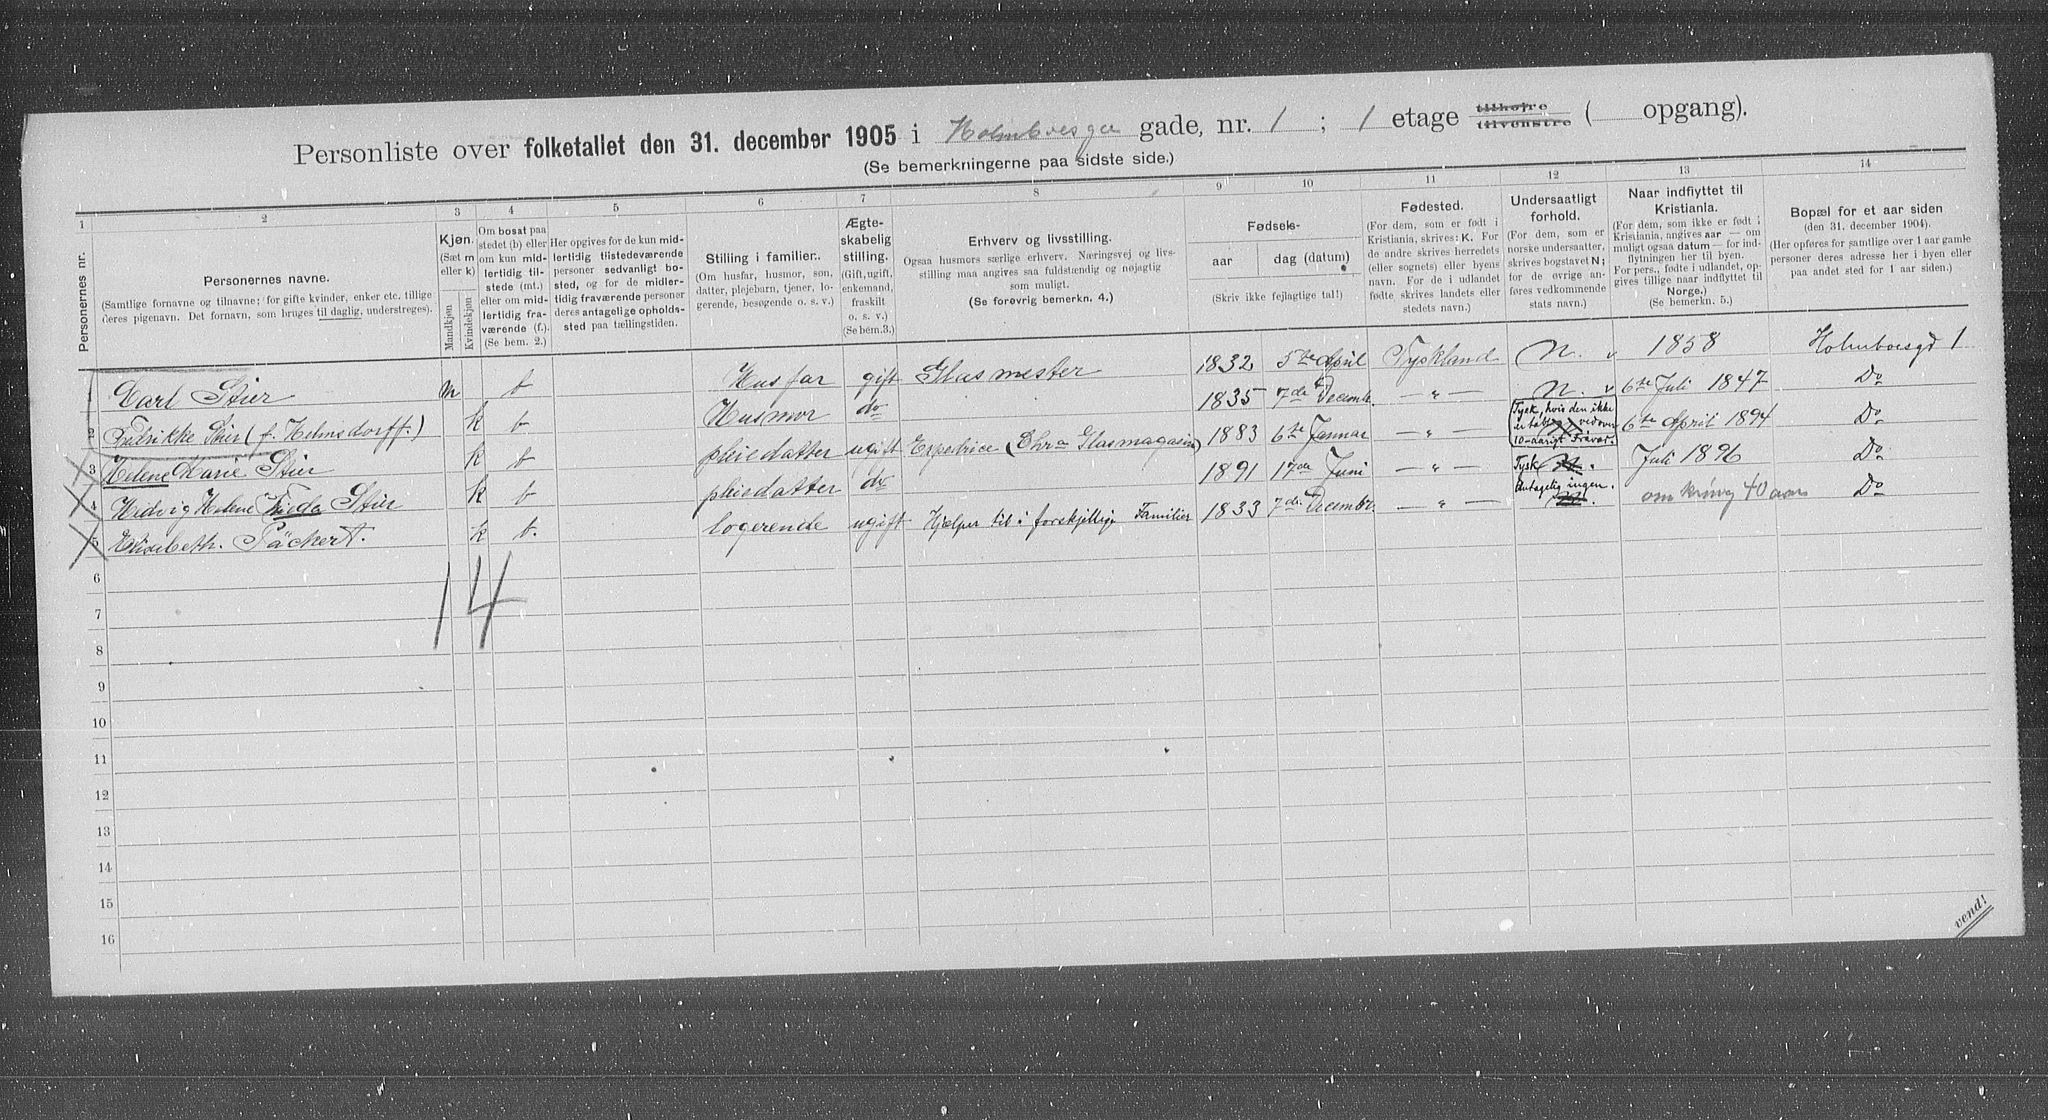 Personliste over folketallet den 31. december 1905 i Holmboesga gade, nr. 1 ; 1 etage tilhøjre tilvenstre ( opgang).
(Se bemerkningerne paa sidste side.)
1 2 3 4 5 6 7 8 9 10 11 12 13 14
Personernes nr.
Personernes navne.
(Samtlige fornavne og tilnavne; for gifte kvinder, enker etc. tillige
deres pigenavn. Det fornavn, som bruges til daglig, understreges).
Kjøn.
(Sæt m
eller k)
Mandkjøn
Kvindekjøn
Om bosat paa
stedet (b) eller
om kun mid-
lertidig til-
stede (mt.)
eller om mid-
lertidig fra-
værende (f.)
(Se bem. 2.)
Her opgives for de kun mid-
lertidig tilstedeværende
personer sedvanligt bo-
sted, og for de midler-
tidig fraværende personer
deres antagelige opholds-
sted paa tællingstiden.
Stilling i familien.
(Om husfar, husmor, søn,
datter, plejebarn, tjener, lo-
gerende, besøgende o. s. v.)
Ægte-
skabelig
stilling.
(Gift, ugift,
enkemand,
fraskilt
o. s. v.)
(Se bem.3.)
Erhverv og livsstilling.
Ogsaa husmors særlige erhverv. Næringsvej og livs-
stilling maa angives saa fuldstændig og nøjagtig
som muligt.
(Se forøvrig bemerkn. 4.)
Fødsels-
aar dag (datum)
(Skriv ikke fejlagtige tal!)
Fødested.
(For dem, som er født i
Kristiania, skrives: K. For
de andre skrives herredets
(eller sognets) eller byens
navn. For de i udlandet
fødte skrives landets eller
stedets navn.)
Undersaatligt
forhold.
(For dem, som er
norske undersaatter,
skrives bogstavet N;
for de øvrige an-
føres vedkommende
stats navn.)
Naar indflyttet til
Kristiania.
(For dem, som ikke er født i
Kristiania, angives aar — om
muligt ogsaa datum — for ind-
flytningen her til byen.
For pers., fødte i udlandet, op-
gives tillige naar indflyttet til
Norge.)
(Se bemerkn. 5.)
Bopæl for et aar siden
(den 31. december 1904).
(Her opføres for samtlige over 1 aar gamle
personer deres adresse her i byen eller
paa andet sted for 1 aar siden.)
1 Carl Stier m b Husfar gift Glasmester 1832 5te April Tyskland N. v 1858 Holmboesgd 1
2 Fredrikke Stier (f. Helmsdorff.) k b Husmor do 1835 7de Decembr. — " — N. v 6te Juli 1847 Do
3 Helene Marie Stier k b pleiedatter ugift Expeditrice (Chra Glasmagasin) 1883 6te Januar — " — Tysk, hvis den ikke er tabt ved over 10-aarigt Fravær. 6te April 1894 Do
4 Hedvig Helene Frieda Stier k b pleiedatter do 1891 17de Juni — " — Tysk N. Juli 1896 Do
5 Elisabeth. Päckert. k b. logerende ugift Hjælper til i forskjellige Familier 1833 7de Decembr. — " — Antagelig ingen. N. omkring 40 aar Do
6
7
1 4
8
9
10
11
12
13
14
15
16
vend!